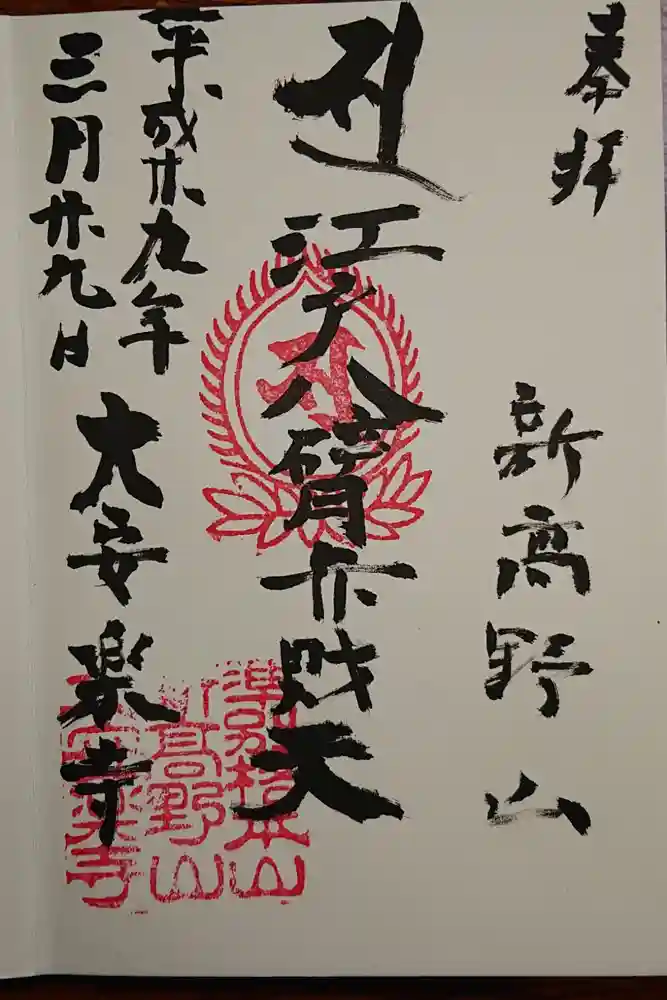 奉拝
新高野山
江戸八臂弁財天
平成廿九年
三月廿九日
大安楽寺
準別格本山
新高野山
大安楽寺